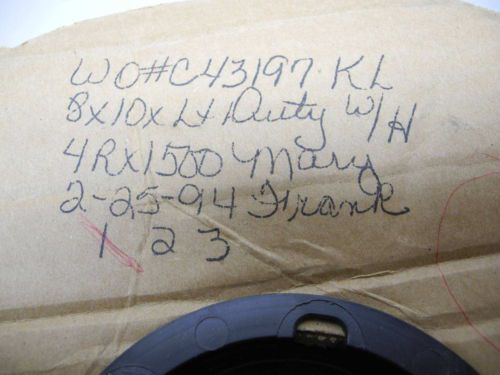 WO#C43197 KL
8x10x Lt Duty W/H
4Rx1500 Mary
2-25-94 Frank
1 2 3